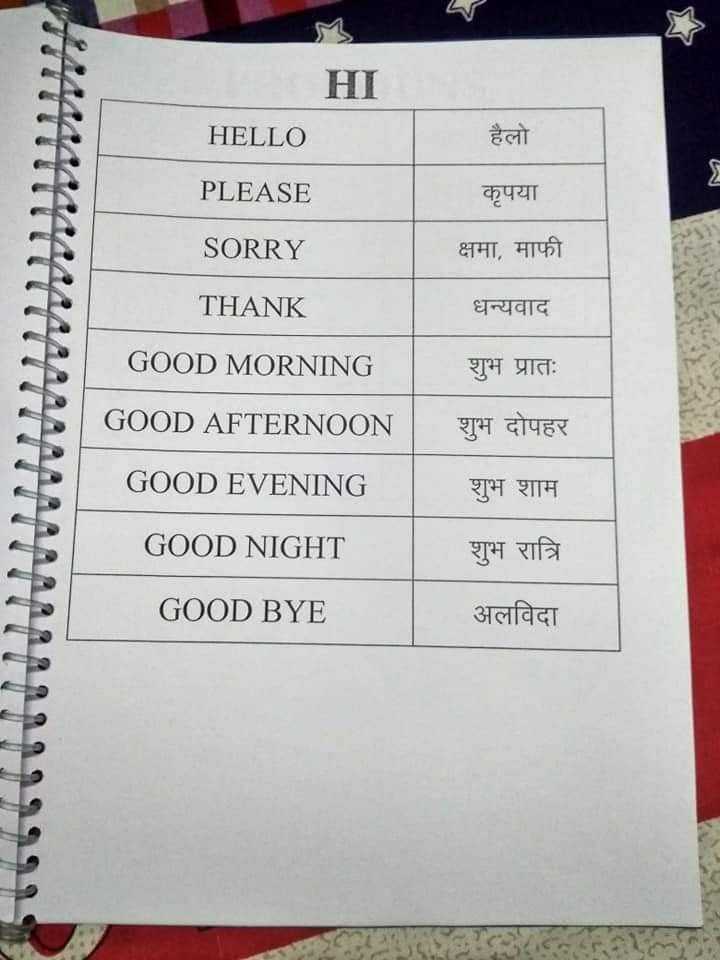 HI
HELLO हैलो
PLEASE कृपया
SORRY क्षमा, माफी
THANK धन्यवाद
GOOD MORNING शुभ प्रातः
GOOD AFTERNOON शुभ दोपहर
GOOD EVENING शुभ शाम
GOOD NIGHT शुभ रात्रि
GOOD BYE अलविदा